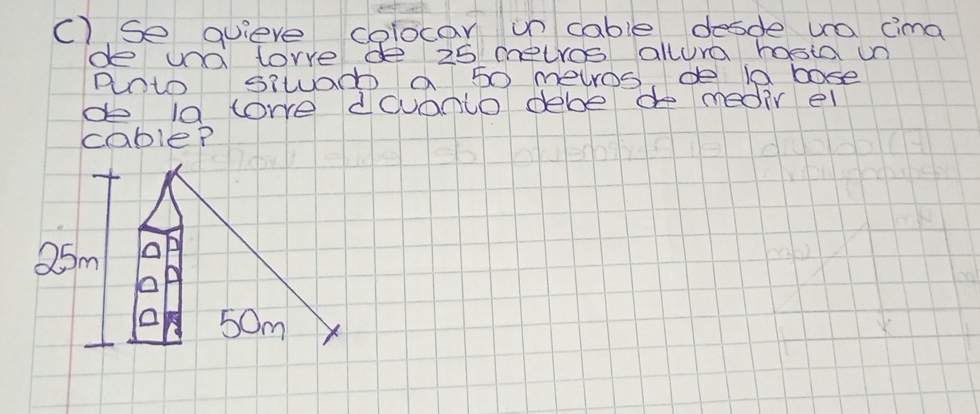 c) Se quiere colocar un cable desde una cima
de una torre de 25 metros altura hasta un
Punto situado a 50 metros de la base
de la torre ¿cuanto debe de medir el
cable?
25m
50m